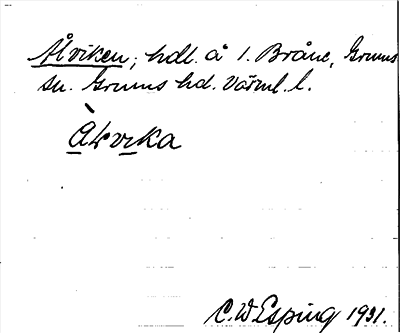 Ålviken, hdl. å 1. Bråne, Grums
sn. Grums hd. Värml. l.
Àlvika
C. W Esping 1931.